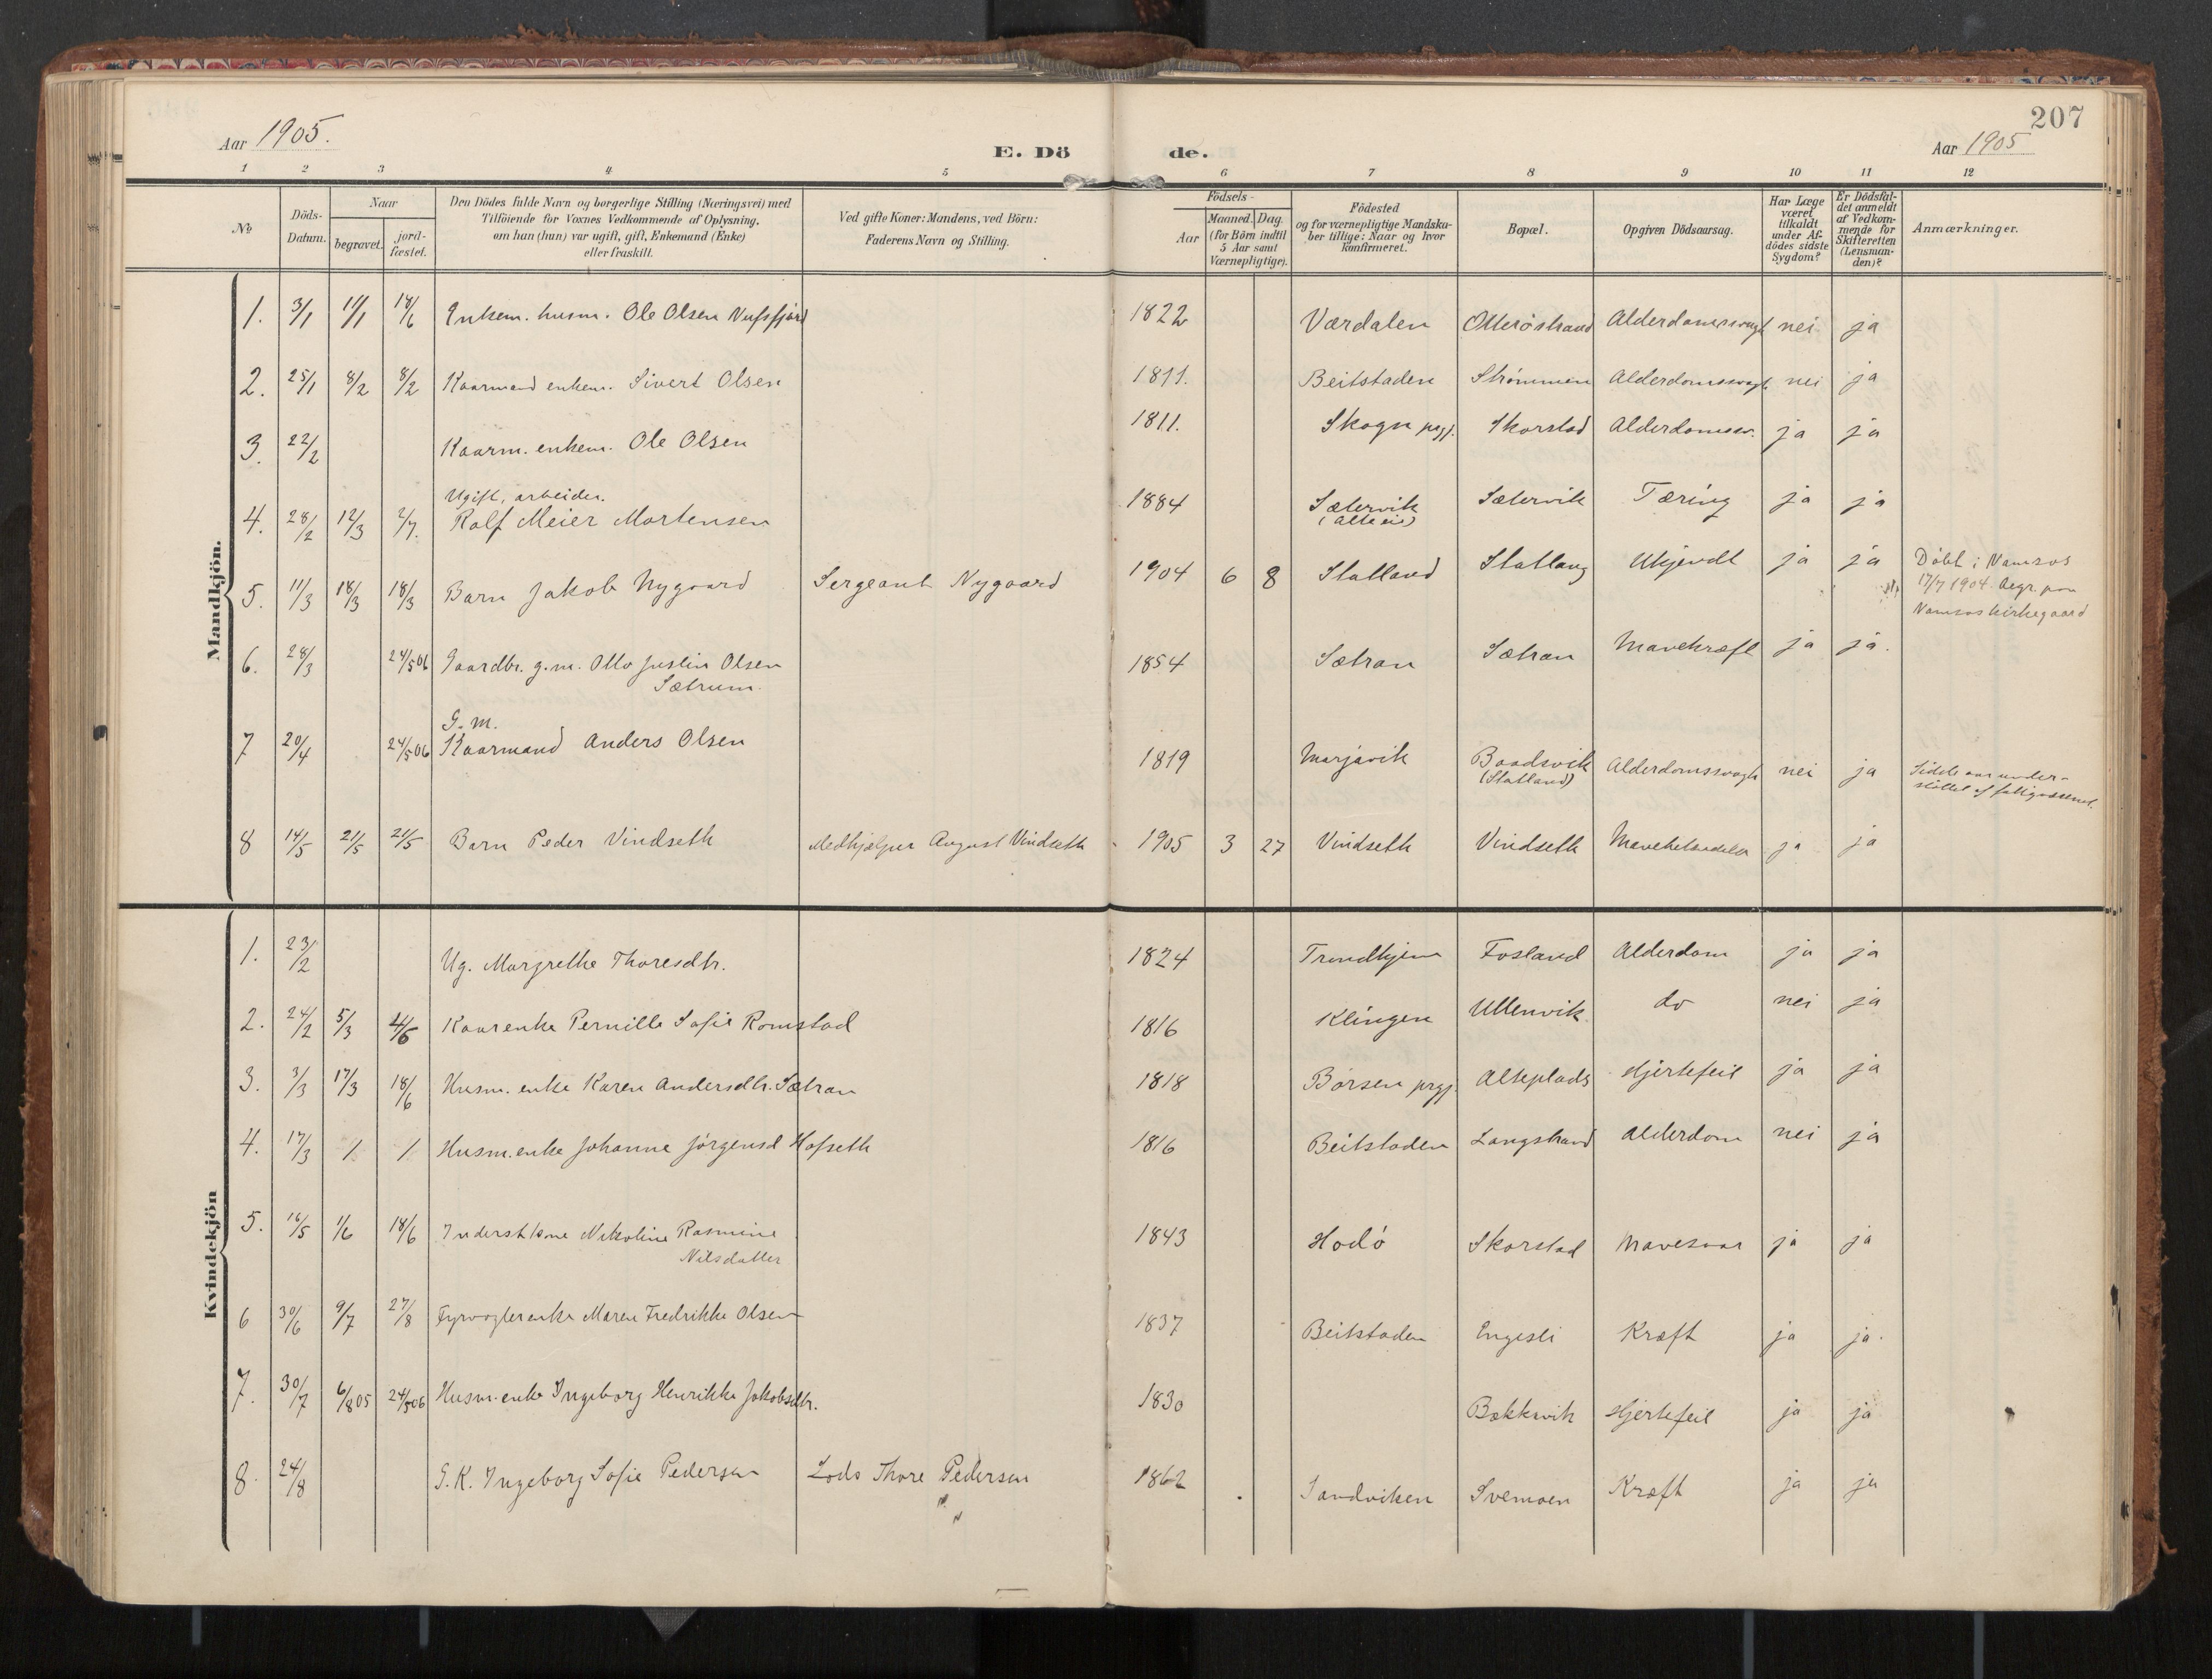 207
Aar 1905.
E. Döde.
Aar 1905
1 2 3 4 5 6 7 8 9 10 11 12
No
Döds-Datum.
Naar
begravet.
jord-fæstet.
Den Dödes fulde Navn og borgerlige Stilling (Næringsvei) med
Tilföiende for Voxnes Vedkommende af Oplysning,
om han (hun) var ugift, gift, Enkemand (Enke)
eller fraskilt.
Ved gifte Koner: Mandens, ved Börn:
Faderens Navn og Stilling.
Födsels-
Aar
Maaned. Dag.
(for Börn indtil
5 Aar samt
Værnepligtige).
Födested
og for værnepligtige Mandska-
ber tillige: Naar og hvor
konfirmeret.
Bopæl.
Opgiven Dödsaarsag.
Har Læge
været
tilkaldt
under Af-
dödes sidste
Sygdom?
Er Dödsfal-
det anmeldt
af Vedkom-
mende for
Skifteretten
(Lensman-
den)?
Anmærkninger.
Mandkjön.
1. 3/1 11/1 18/6 Enkem. husm. Ole Olsen Nufsfjord 1822 Værdalen Otterøstrand Alderdomssvagh nei ja
2. 25/1 8/2 8/2 Kaarmand enkem. Sivert Olsen 1811. Beitstaden Strømmen Alderdomssvagh nei ja
3. 22/2 Kaarm. enkem. Ole Olsen 1811. Skogn prgj. Skorstad Alderdomssv. ja ja
Ugift, arbeider.
4. 28/2 12/3 2/7. Rolf Meier Mortensen 1884 Sætervik Sætervik Tæring ja ja
(Alte eie)
5. 11/3 18/3 18/3 Barn Jakob Nygaard Sergeant Nygaard 1904 6 8 Statland Statland Ukjendt ja ja Døbt i Namsos
17/7 1904. Begr. paa
Namsos kirkegaard
6. 28/3 24/5 06 Gaardbr. g.m. Otto Justin Olsen 1854 Sætran Sætran Mavekræft ja ja.
Sætrum.
G. m.
7 20/4 24/5 06 Kaarmand Anders Olsen 1819 Marjavik Baadsvik Alderdomssvagh nei ja Sidste aar under-
(Statland) støttet af fattigvæsenet.
8 14/5 21/5 21/5 Barn Peder Vindseth Medhjælper August Vindseth 1905 3 27 Vindseth Vindseth ja ja
Kvindekjön
1. 23/2 Ug. Margrethe Thoresdtr. 1824 Trondhjem Fosland Alderdom ja ja
2. 24/2 5/3 Kaarenke Pernille Sofie Romstad 1816 Klingen Ullenvik. do nei ja
3. 3/3 17/3 18/6 Husm. enke Karen Andersdtr. Sætran 1818 Børsen prgj. Alteplads Hjertefeil ja ja
4. 17/3 / / Husm. enke Johanne Jørgensd Hofseth 1816 Beitstaden Langstrand Alderdom nei ja
5. 16/5 1/6 18/6 Inderstkone Nikoline Rasmine 1843 Hodø Skorstad Mavesaar ja ja
Nilsdatter
6 30/6 9/7 27/8 Fyrvogterenke Maren Fredrikke Olsen 1837 Beitstaden Engesli Kræft ja ja.
7. 30/7 6/8 05 24/5 06 Husm. enke Ingeborg Henrikke Jakobsdtr. 1830 Bækkvik Hjertefeil ja ja
8. 24/8 G. K. Ingeborg Sofie Pedersen Lods Thore Pedersen 1862 Sandviken Svemoen Kræft ja ja